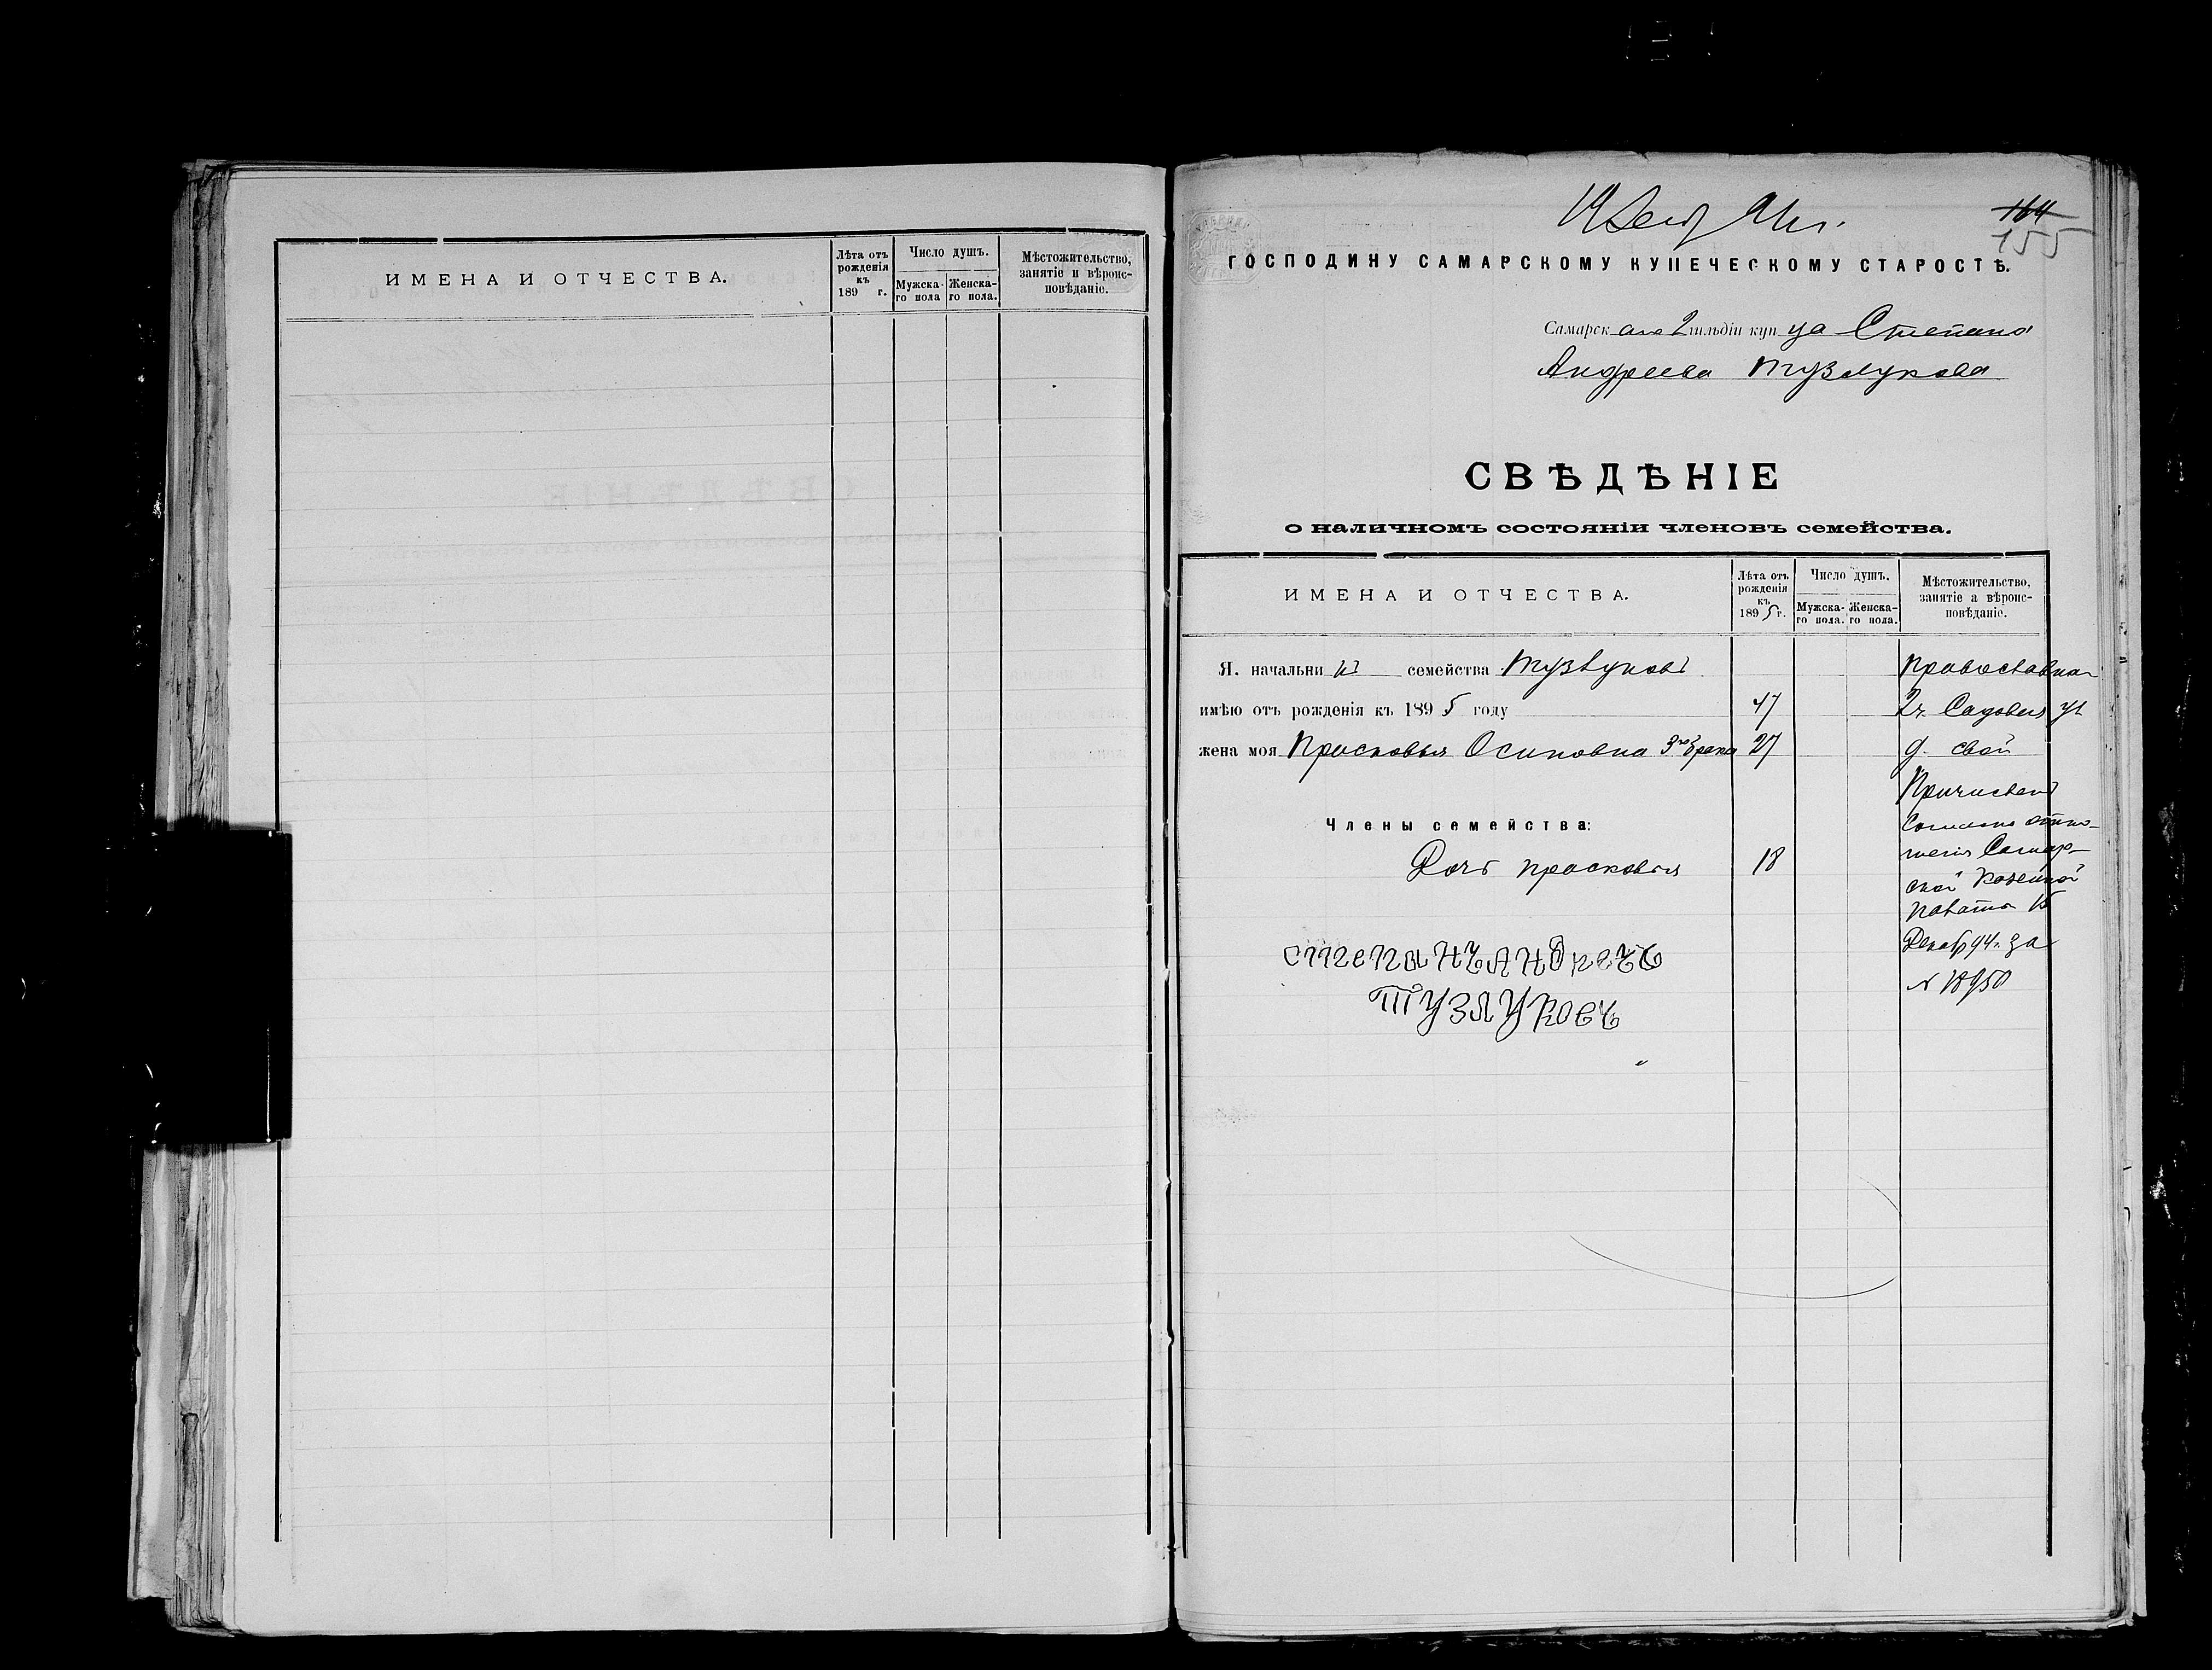 ИМЕНА И ОТЧЕСТВА.
Лѣта отъ рожденія къ 189 г.
Число душъ.
Мужска-го пола
Женска-го пола.
Мѣстожительство, занятіе и вѣроис-повѣданіе.
164
155
ГОСПОДИНУ САМАРСКОМУ КУПЕЧЕСКОМУ СТАРОСТѢ.
Самарскаго 2 гильдіи купца Степана
Андреева Тузлукова
СВѢДѢНІЕ
о наличномъ состояніи членовъ семейства.
ИМЕНА И ОТЧЕСТВА.
Лѣта отъ рожденія къ 1895 г.
Число душъ.
Мужска-го пола.
Женска-го пола.
Мѣстожительство, занятіе а вѣроис-повѣданіе.
Я. начальникъ семейства Тузлуковъ
Православна
имѣю отъ рожденія къ 1895 году 47
2 ч. Садовая ул
жена моя Просковья Осиповна 3го брака 27
д. свой
Причислен
Члены семейства:
Согласно отно-
шенія Самар-
Дочь просковья 18
ской Казенной
Палаты 15
Декабр 94 г. за
№ 18950
СтепанЪ АНдреевЪ
ТУЗЛУКОВЪ